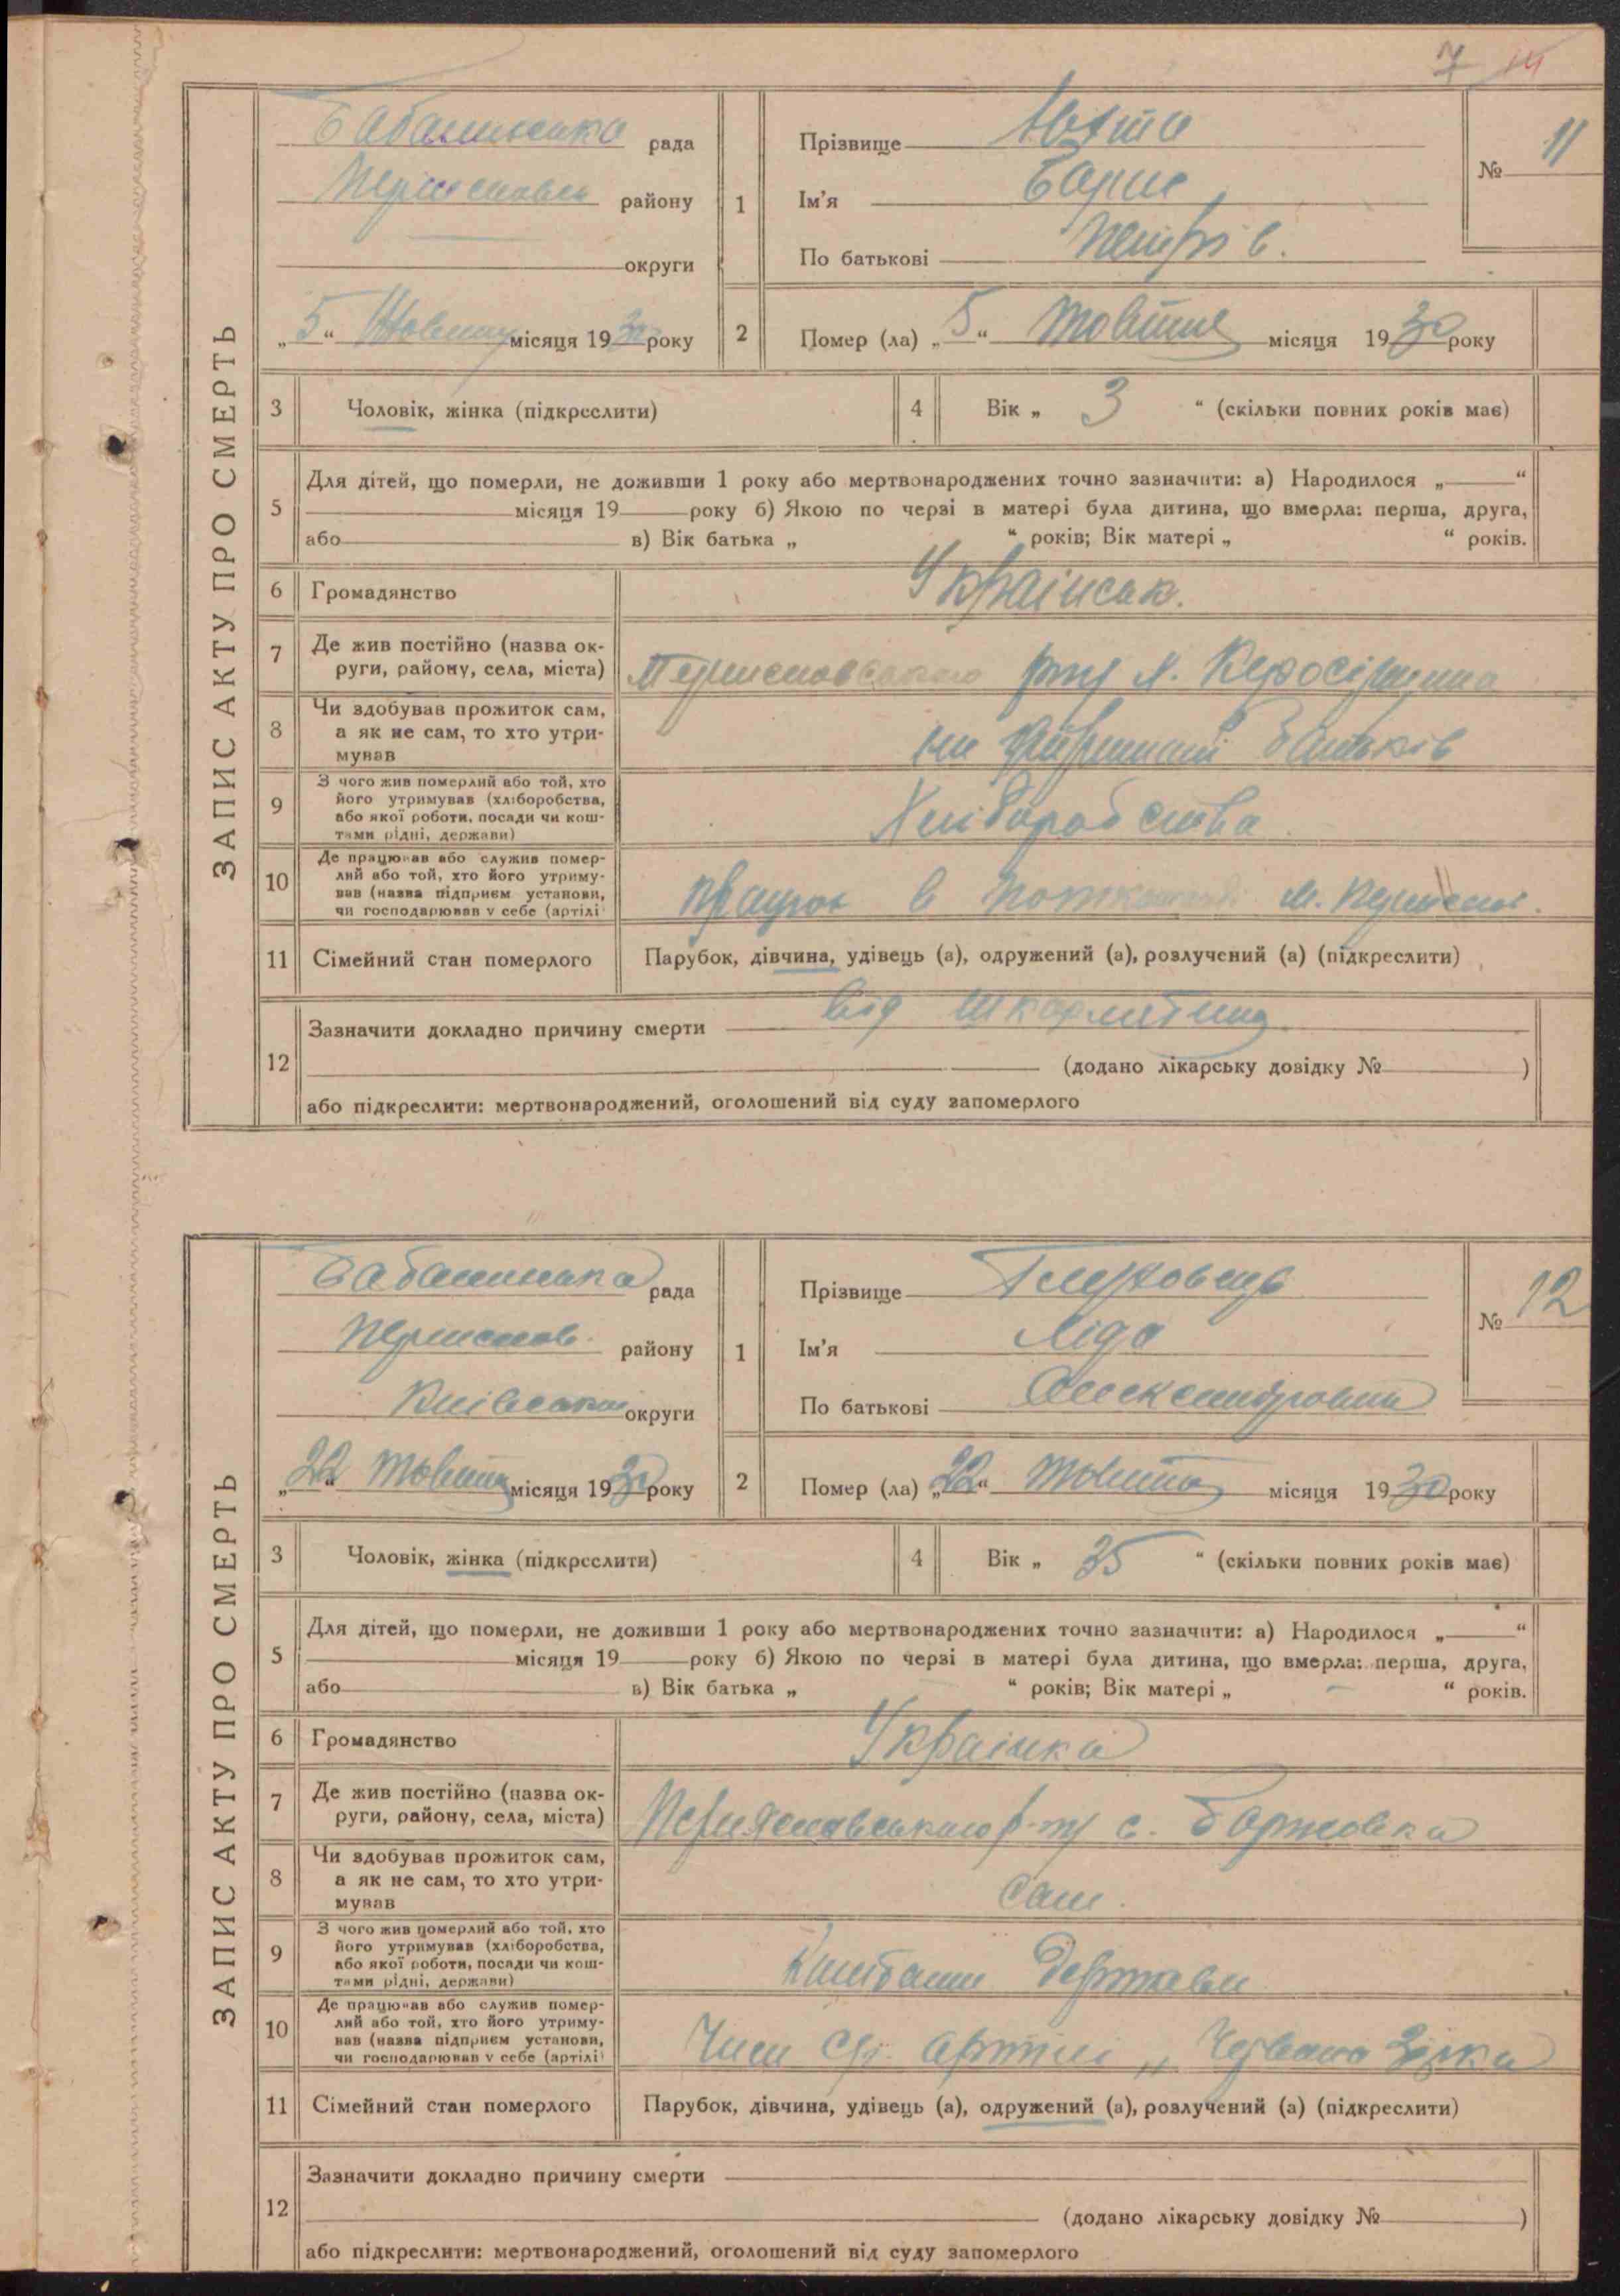 7 14
ЗАПИС АКТУ ПРО СМЕРТЬ
Бабашинська рада
району
округи
„5“ Жовтня місяця 1930 року
1
Прізвище
Ім'я Борис
По батькові Петрів.
№ 11
2 Помер (ла) „5“ Жовтня місяця 1930 року
3 Чоловік, жінка (підкреслити)
4 Вік „ 3 “ (скільки повних років має)
5 Для дітей, що померли, не доживши 1 року або мертвонароджених точно зазначити: а) Народилося „ “
місяця 19 року б) Якою по черзі в матері була дитина, що вмерла: перша, друга,
або в) Вік батька „ “ років; Вік матері „ “ років.
6 Громадянство Українськ.
7 Де жив постійно (назва ок-
руги, району, села, міста)
8 Чи здобував прожиток сам,
а як не сам, то хто утри-
мував
на утриманні батьків
9 З чого жив померлий або той, хто
його утримував (хліборобства,
або якої роботи, посади чи кош-
тами рідні, держави)
Хліборобства
10 Де працював або служив помер-
лий або той, хто його утриму-
вав (назва підприєм установи,
чи господарював у себе (артілі)
в м.
11 Сімейний стан померлого Парубок, дівчина, удівець (а), одружений (а), розлучений (а) (підкреслити)
12 Зазначити докладно причину смерти від Шкарлятини
(додано лікарську довідку № )
або підкреслити: мертвонароджений, оголошений від суду запомерлого
ЗАПИС АКТУ ПРО СМЕРТЬ
Бабашинська рада
району
Київської округи
„22“ Жовтня місяця 1930 року
1
Прізвище
Ім'я Ліда
По батькові Олександровна
№ 12
2 Помер (ла) „22“ Жовтня місяця 1930 року
3 Чоловік, жінка (підкреслити)
4 Вік „ 35 “ (скільки повних років має)
5 Для дітей, що померли, не доживши 1 року або мертвонароджених точно зазначити: а) Народилося „ “
місяця 19 року б) Якою по черзі в матері була дитина, що вмерла: перша, друга,
або в) Вік батька „ “ років; Вік матері „ “ років.
6 Громадянство Українка
7 Де жив постійно (назва ок-
руги, району, села, міста)
р-ну с.
8 Чи здобував прожиток сам,
а як не сам, то хто утри-
мував
Сам.
9 З чого жив померлий або той, хто
його утримував (хліборобства,
або якої роботи, посади чи кош-
тами рідні, держави)
Держави
10 Де працював або служив помер-
лий або той, хто його утриму-
вав (назва підприєм установи,
чи господарював у себе (артілі)
артілі „ Червона Зірка
11 Сімейний стан померлого Парубок, дівчина, удівець (а), одружений (а), розлучений (а) (підкреслити)
12 Зазначити докладно причину смерти
(додано лікарську довідку № )
або підкреслити: мертвонароджений, оголошений від суду запомерлого